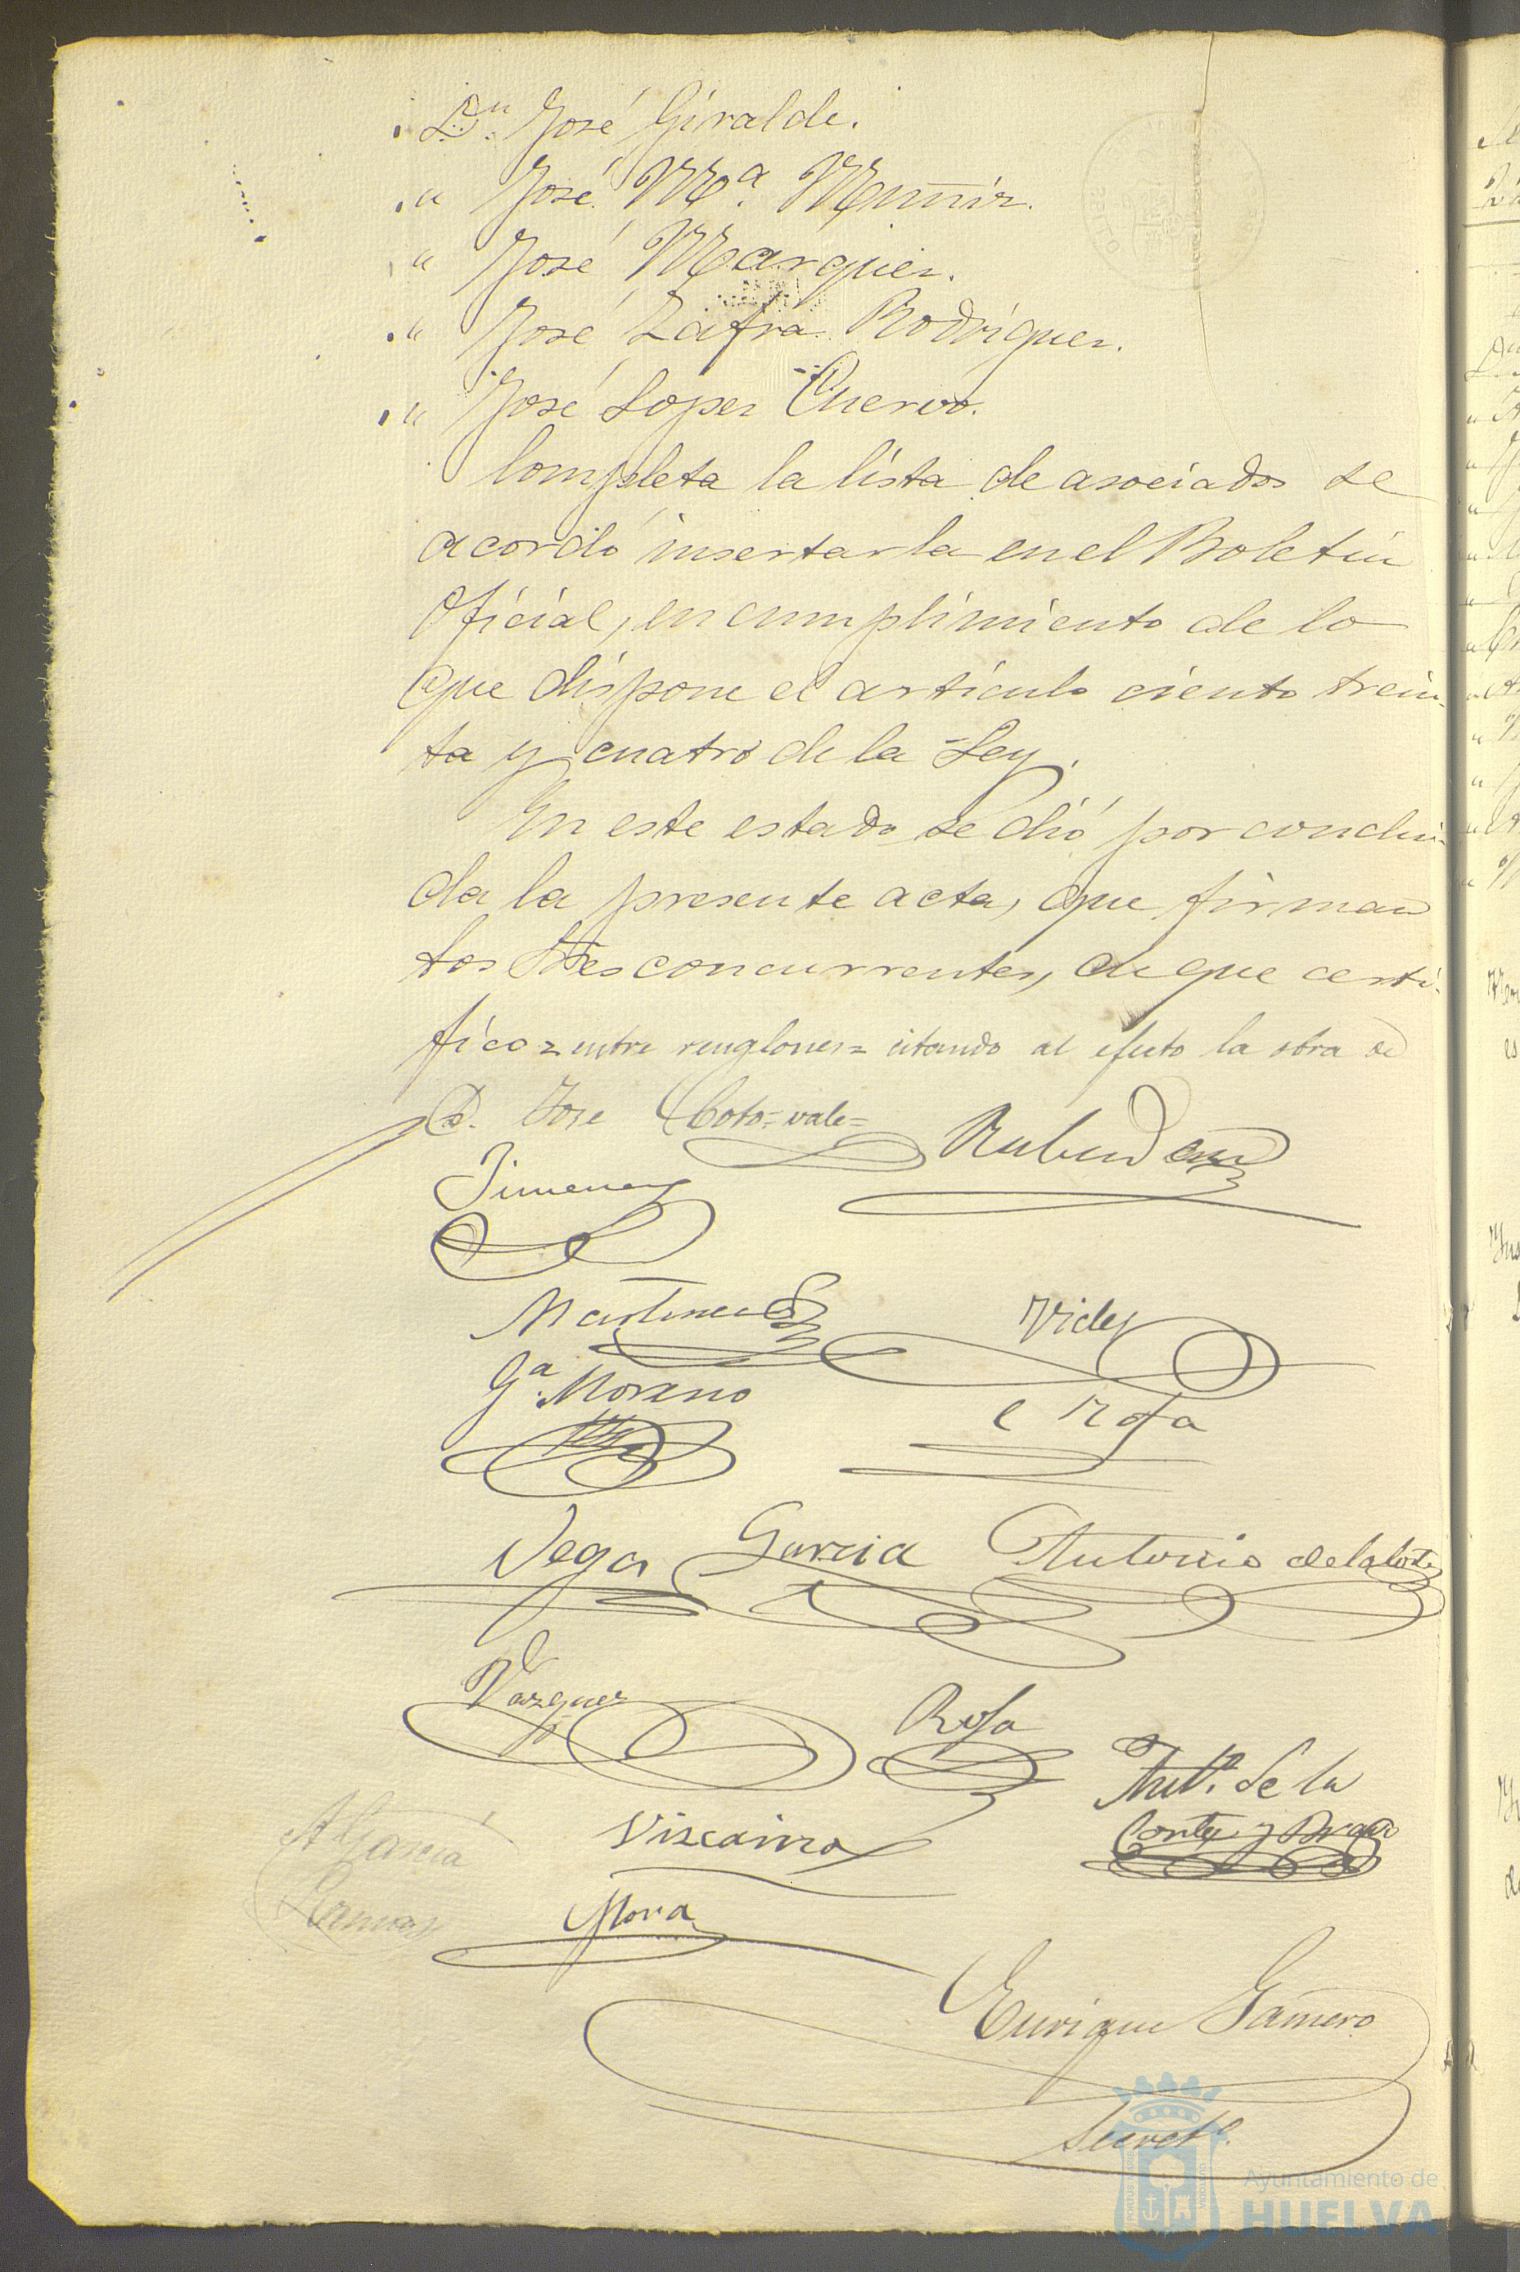 Dn. José Giralde.
" José Mª. Muñiz.
" José Marquez.
" José Zafra Rodriguez.
" José Lopez Cuervo.
Completa la lista de asociados se
acordó insertarla en el Boletin
Oficial, en cumplimiento de lo
que dispone el artículo ciento trein-
ta y cuatro de la Ley.
En este estado se dió por conclui-
da la presente acta, que firman
los Sres concurrentes, de que certi-
fico = entre renglones = citando al efecto la obra de
D. Jose Coto = vale =
Jimenez
Martinez
Videz
Gª. Moreno
Rofa
Vega Garcia Antonio de la Corte
Vazquez
Rofa
Antº. de la
Corte y Bravo
A Garcia
Ramos
Vizcaino
Mora
Enrique Gamero
Secretº.
Ayuntamiento de
HUELVA